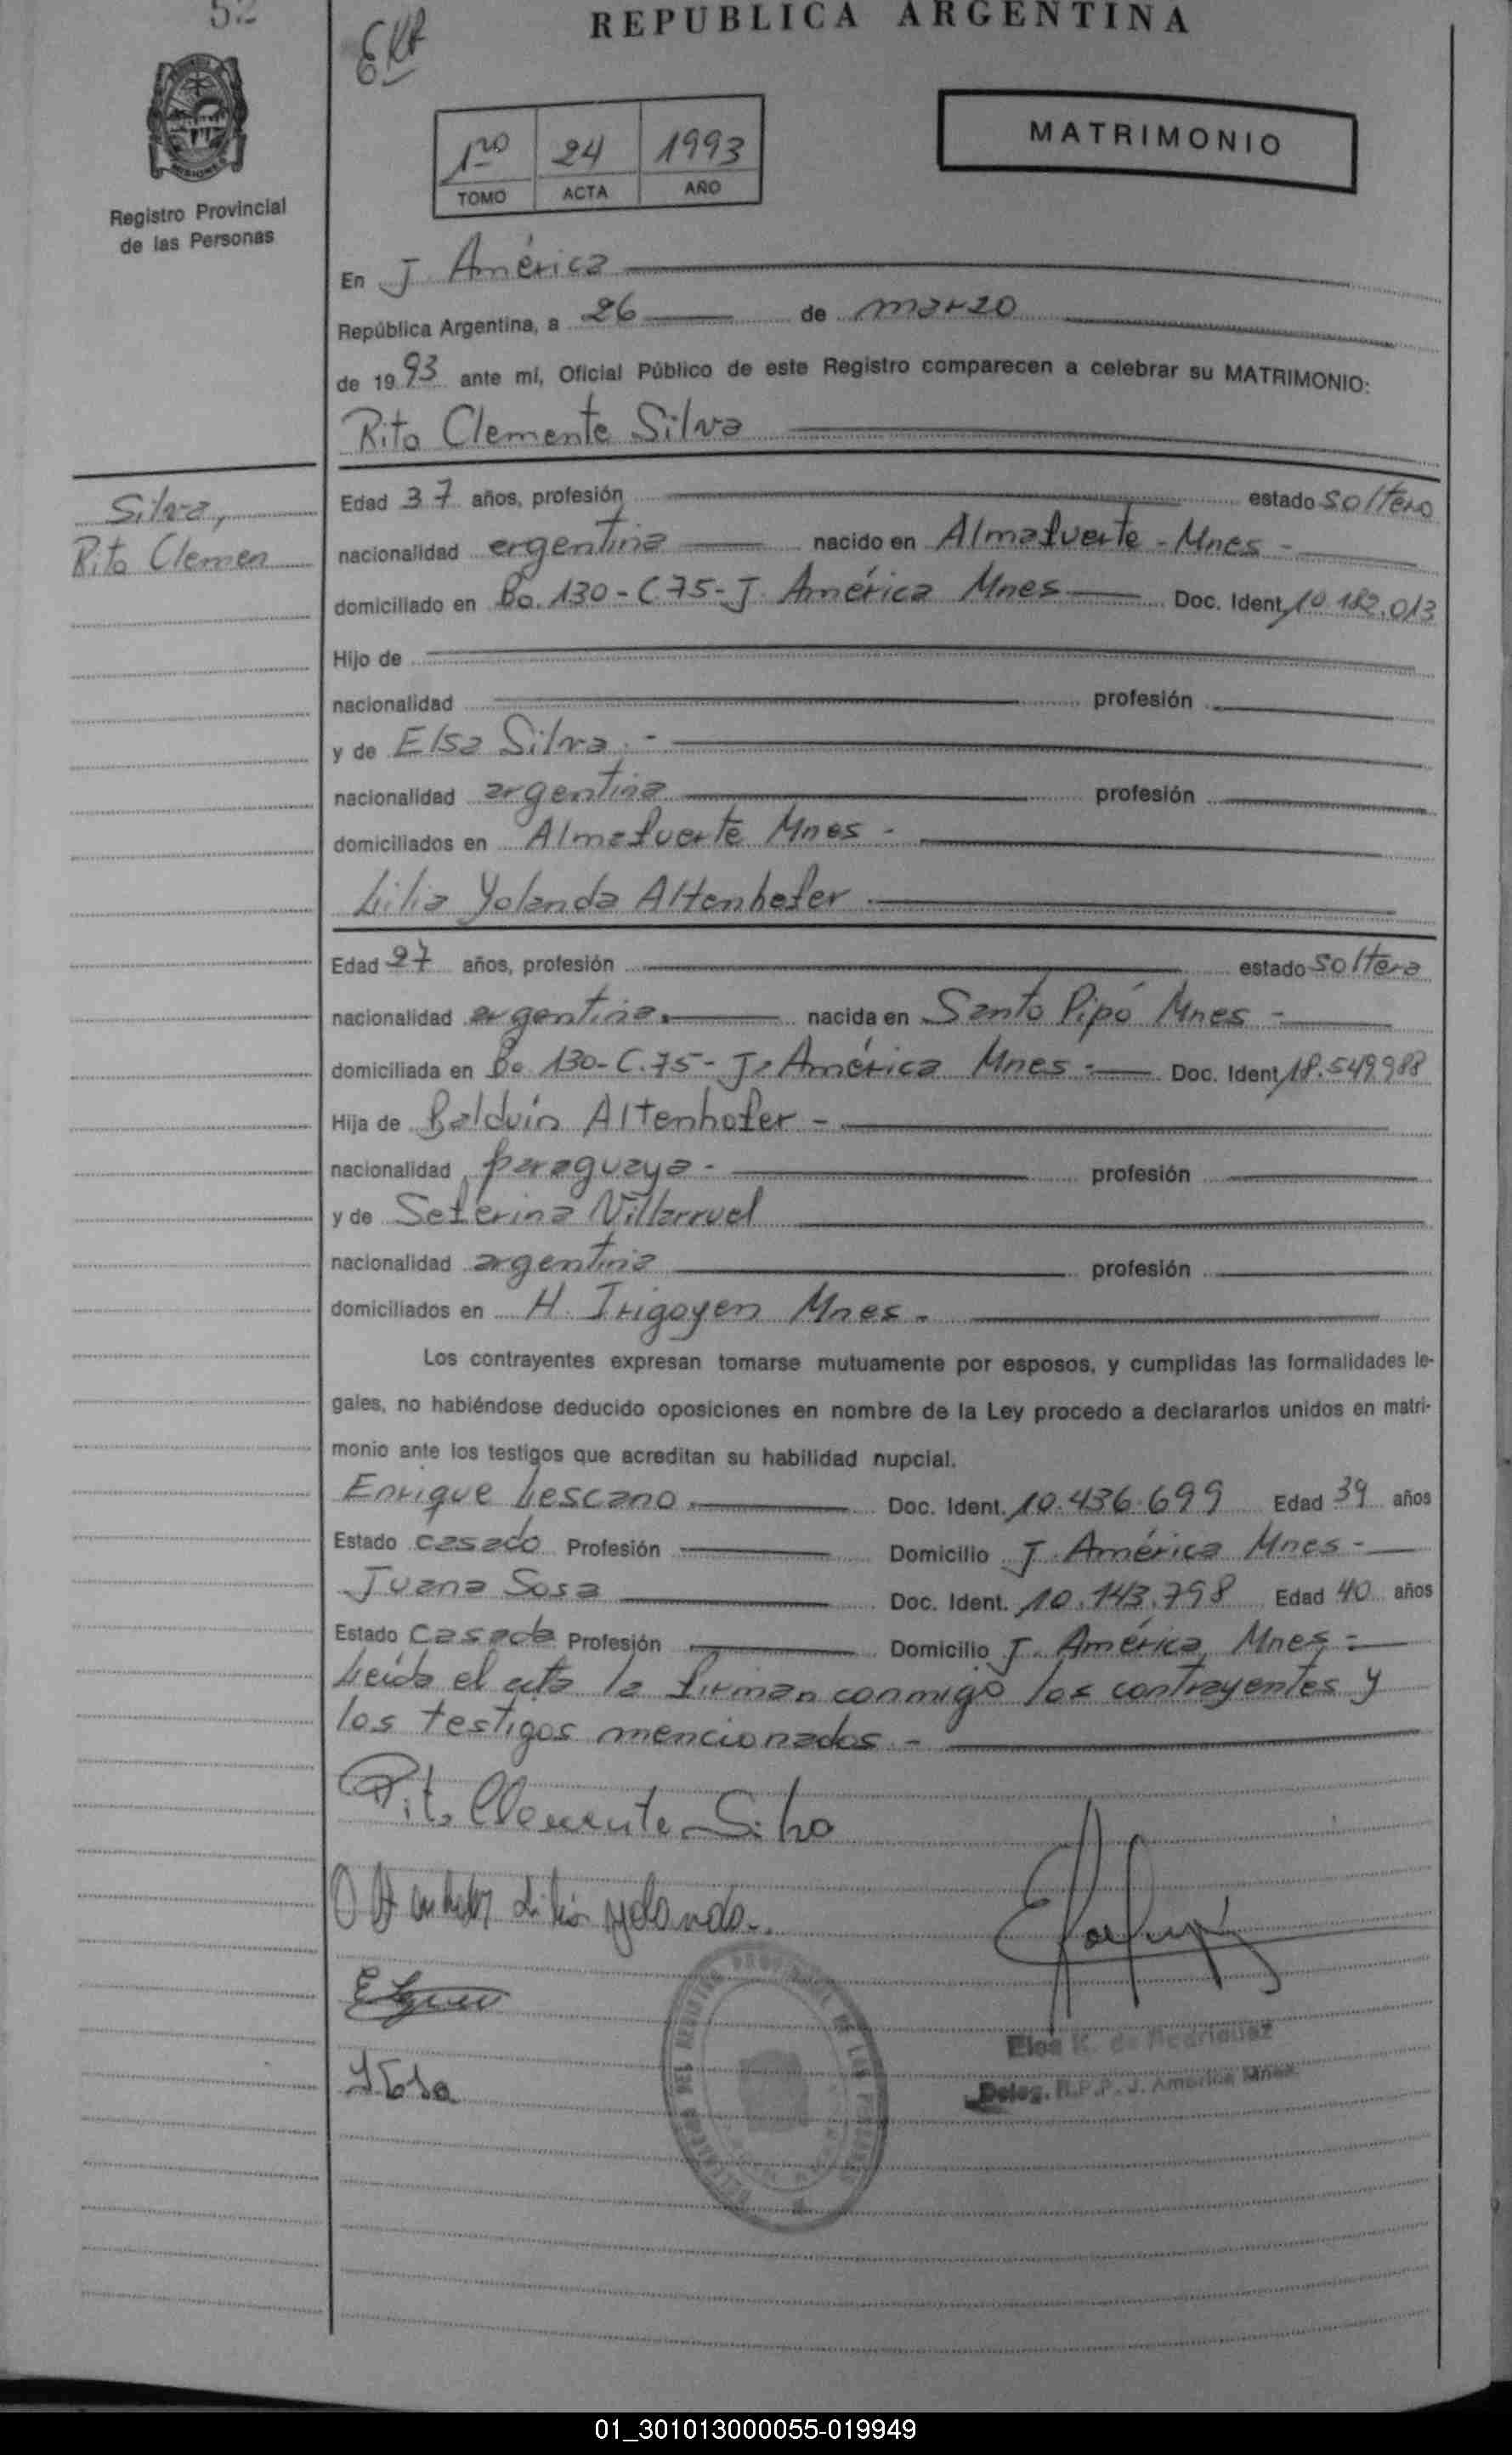 52
REPUBLICA ARGENTINA
EKR
MATRIMONIO
1ro 24 1993
TOMO ACTA AÑO
Registro Provincial
de las Personas
En J. América
República Argentina, a 26 de marzo
de 1993 ante mí, Oficial Público de este Registro comparecen a celebrar su MATRIMONIO:
Rito Clemente Silva
Silva,
Rito Clemen
Edad 37 años, profesión estado soltero
nacionalidad argentina nacido en Almafuerte - Mnes -
domiciliado en Bo. 130 - C 75 - J. América Mnes Doc. Ident. 10.182.013
Hijo de
nacionalidad profesión
y de Elsa Silva. -
nacionalidad argentina profesión
domiciliados en Almafuerte Mnes -
Lilia Yolanda Altenhofer
Edad 27 años, profesión estado soltera
nacionalidad argentina. nacida en Santo Pipó Mnes -
domiciliada en Bo 130 - C. 75 - J. América Mnes - Doc. Ident. 18.549.988
Hija de Balduin Altenhofer -
nacionalidad paraguaya - profesión
y de Seferina Villarruel
nacionalidad argentina profesión
domiciliados en H. Irigoyen Mnes -
Los contrayentes expresan tomarse mutuamente por esposos, y cumplidas las formalidades le-
gales, no habiéndose deducido oposiciones en nombre de la Ley procedo a declararlos unidos en matri-
monio ante los testigos que acreditan su habilidad nupcial.
Enrique Lescano Doc. Ident. 10.436.699 Edad 39 años
Estado casado Profesión Domicilio J. América Mnes -
Juana Sosa Doc. Ident. 10.143.798 Edad 40 años
Estado casada Profesión Domicilio J. América, Mnes -
Leída el acta la firman conmigo los contrayentes y
los testigos mencionados -
Rito Clemente Silva
Altenhofer Lilia Yolanda
Elsa K. de Rodriguez
Deleg. R.P.P. J. America Mnes.
01_301013000055-019949